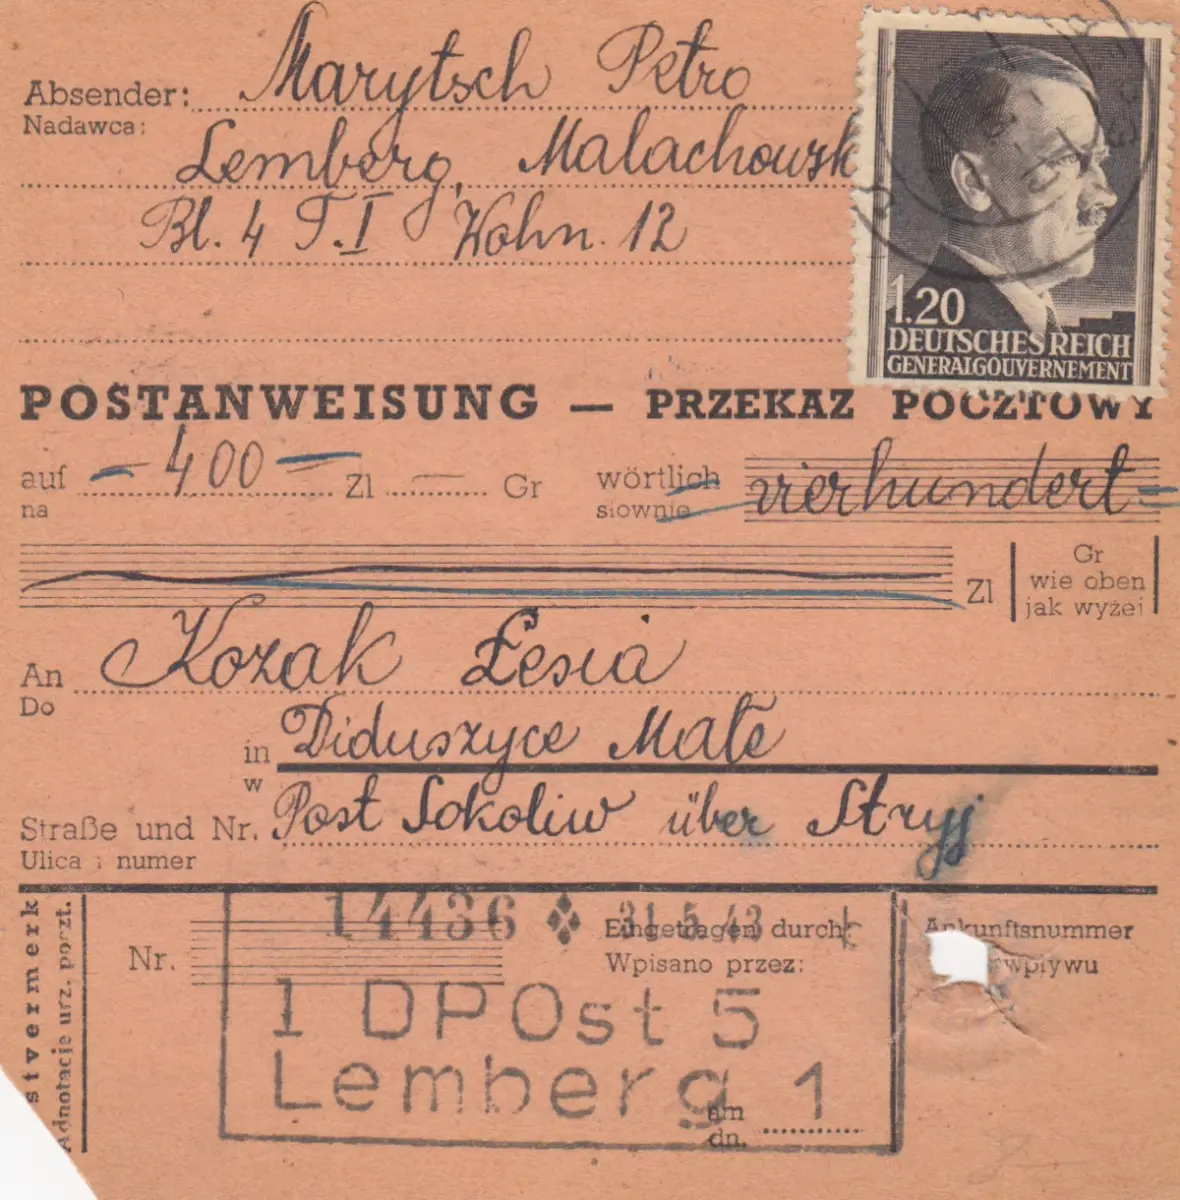 Absender: Marytsch Petro
Nadawca:
Lemberg, Malachowsk
Bl. 4 T. I Wohn. 12
1.20
DEUTSCHES REICH
GENERALGOUVERNEMENT
POSTANWEISUNG — PRZEKAZ POCZTOWY
auf — 400 — Zl — Gr wörtlich vierhundert =
na słownie
Zl Gr
wie oben
jak wyżej
An Kozak Łesia
Do
in Diduszyce Małe
w
Straße und Nr. Post Sokoliw über Stryj
Ulica i numer
stvermerk
Adnotacje urz. poczt.
14436 31.5.43
Nr. Eingetragen durch: Ankunftsnummer
Wpisano przez: wpływu
1 DPOst 5
Lemberg 1
am
dn.